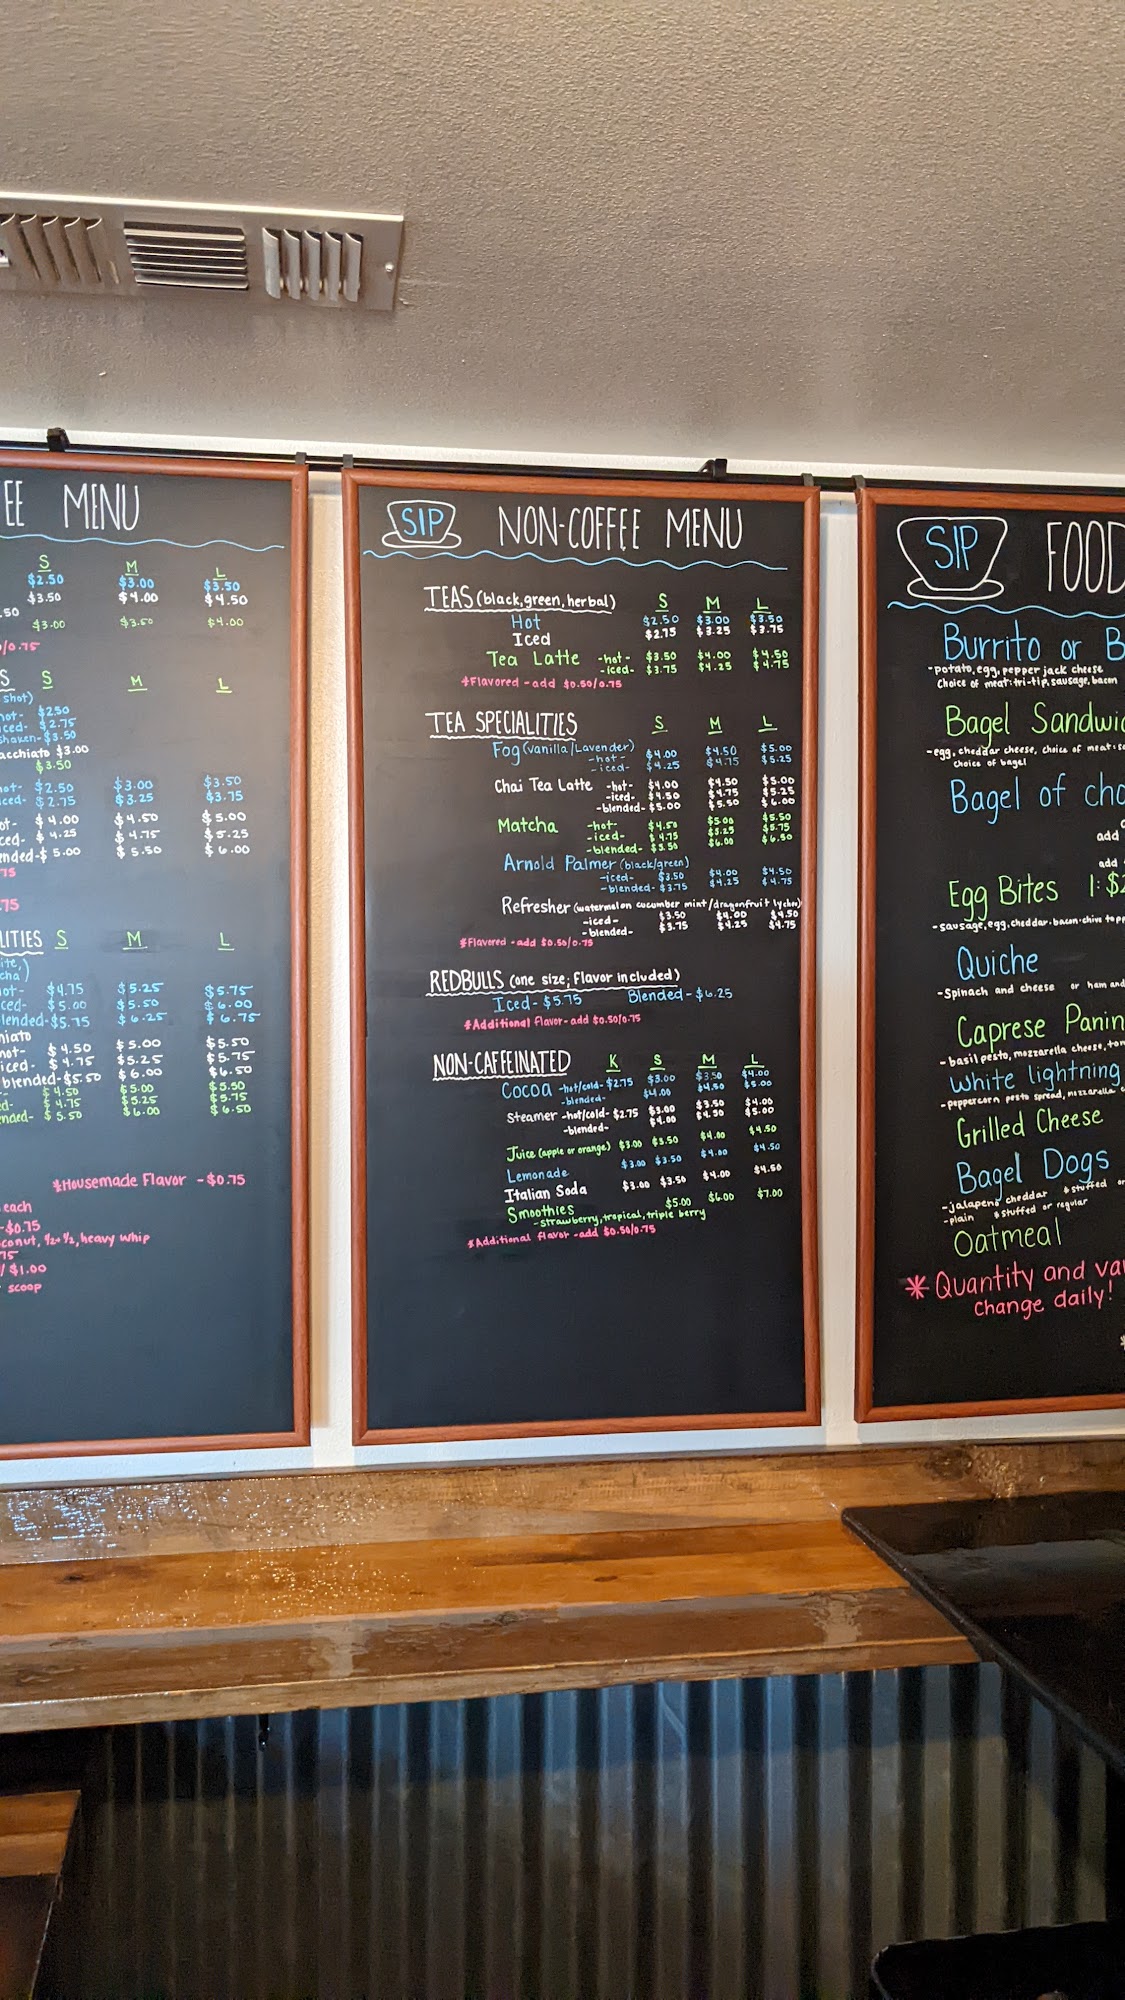 EE MENU
S M L
$2.50 $3.00 $3.50
$3.50 $4.00 $4.50
.50
$3.00 $3.50 $4.00
/0.75
S S M L
shot)
hot- $2.50
iced- $2.75
shaken- $3.50
acchiato $3.00
$3.50
hot- $2.50 $3.00 $3.50
iced- $2.75 $3.25 $3.75
ot- $4.00 $4.50 $5.00
ced- $4.25 $4.75 $5.25
ended- $5.00 $5.50 $6.00
75
.75
LITIES S M L
ite,
cha)
ot- $4.75 $5.25 $5.75
ced- $5.00 $5.50 $6.00
lended- $5.75 $6.25 $6.75
hiato
hot- $4.50 $5.00 $5.50
iced- $4.75 $5.25 $5.75
blended- $5.50 $6.00 $6.50
$4.50 $5.00 $5.50
ed- $4.75 $5.25 $5.75
nded- $5.50 $6.00 $6.50
*Housemade Flavor - $0.75
each
- $0.75
conut, ½+½, heavy whip
75
/ $1.00
scoop
SIP NON-COFFEE MENU
TEAS (black, green, herbal) S M L
Hot $2.50 $3.00 $3.50
Iced $2.75 $3.25 $3.75
Tea Latte -hot- $3.50 $4.00 $4.50
-iced- $3.75 $4.25 $4.75
*Flavored - add $0.50/0.75
TEA SPECIALITIES S M L
Fog (vanilla/Lavender)
-hot- $4.00 $4.50 $5.00
-iced- $4.25 $4.75 $5.25
Chai Tea Latte -hot- $4.00 $4.50 $5.00
-iced- $4.50 $4.75 $5.25
-blended- $5.00 $5.50 $6.00
Matcha -hot- $4.50 $5.00 $5.50
-iced- $4.75 $5.25 $5.75
-blended- $5.50 $6.00 $6.50
Arnold Palmer (black/green)
-iced- $3.50 $4.00 $4.50
-blended- $3.75 $4.25 $4.75
Refresher (watermelon cucumber mint/dragonfruit lychee)
-iced- $3.50 $4.00 $4.50
-blended- $3.75 $4.25 $4.75
*Flavored - add $0.50/0.75
REDBULLS (one size; Flavor included)
Iced - $5.75 Blended - $6.25
*Additional Flavor - add $0.50/0.75
NON-CAFFEINATED K S M L
Cocoa -hot/cold- $2.75 $3.00 $3.50 $4.00
-blended- $4.00 $4.50 $5.00
Steamer -hot/cold- $2.75 $3.00 $3.50 $4.00
-blended- $4.00 $4.50 $5.00
Juice (apple or orange) $3.00 $3.50 $4.00 $4.50
Lemonade $3.00 $3.50 $4.00 $4.50
Italian Soda $3.00 $3.50 $4.00 $4.50
Smoothies $5.00 $6.00 $7.00
-strawberry, tropical, triple berry
*Additional flavor - add $0.50/0.75
SIP FOOD
Burrito or B
-potato, egg, pepper jack cheese
choice of meat: tri-tip, sausage, bacon
Bagel Sandwic
-egg, cheddar cheese, choice of meat: s
choice of bagel
Bagel of cho
add
add
Egg Bites 1: $2
-sausage, egg, cheddar · bacon · chive topp
Quiche
-Spinach and cheese or ham and
Caprese Panin
-basil pesto, mozzarella cheese, tom
White lightning
-peppercorn pesto spread, mozzarella c
Grilled Cheese
Bagel Dogs
-jalapeno cheddar *stuffed or
-plain *stuffed or regular
Oatmeal
*Quantity and va
change daily!